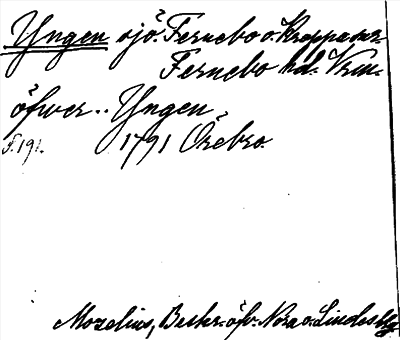 Yngen sjö. Fernebo o. Kroppa snr
Fernebo hd. Vrml.
öfver .. Yngen
S. 191. 1791 Örebro.
Mozelius, Beskr. öfv. Nora o. Lindesbg